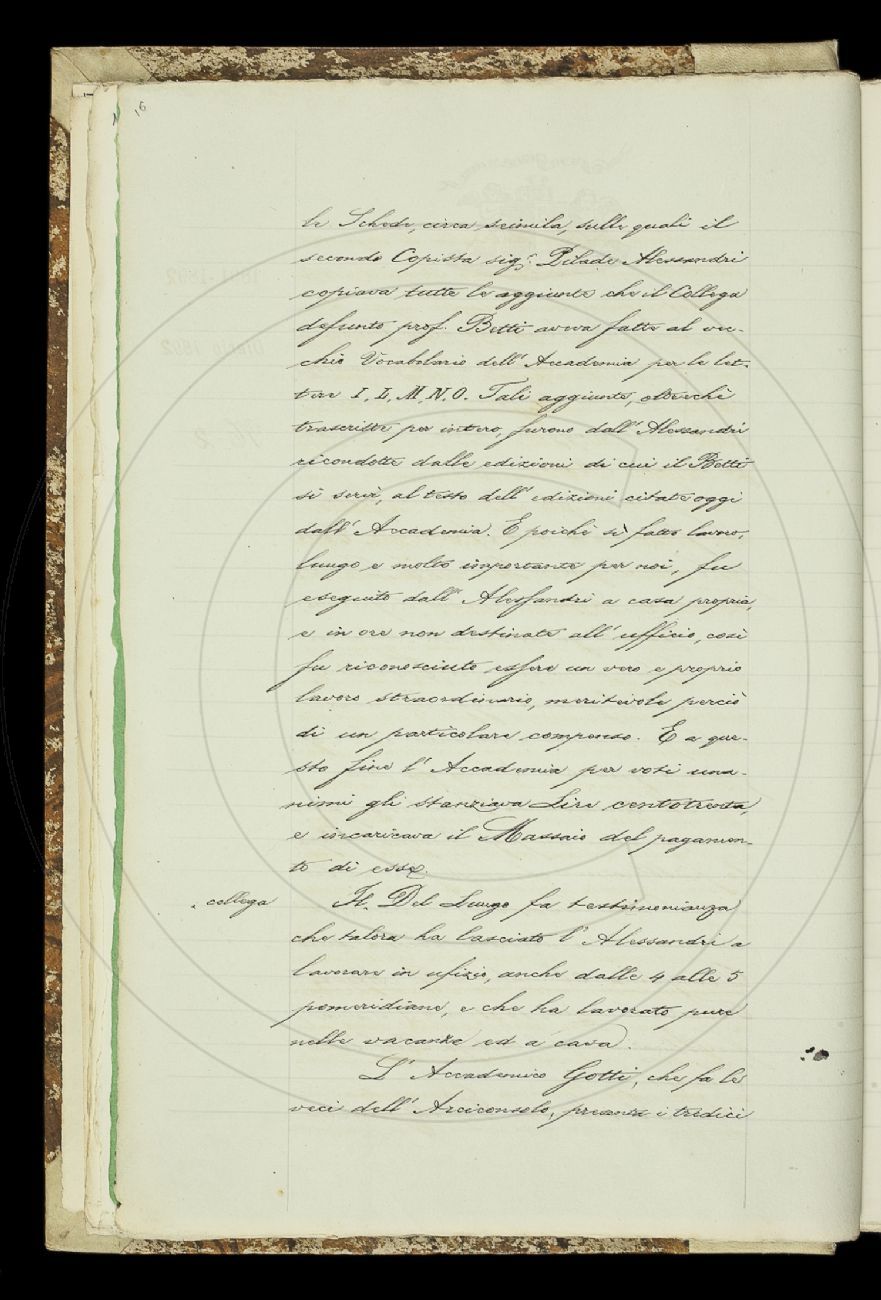 16
le Schede, circa seimila, sulle quali il
secondo Copista sig.r Pilade Alessandri
copiava tutte le aggiunte che il Collega
defunto prof. Betti aveva fatte al vec-
chio Vocabolario dell'Accademia per le let-
tere I, L, M, N, O. Tali aggiunte, oltrechè
trascritte per intero, furono dall'Alessandri
ricondotte dalle edizioni di cui il Betti
si servì, al testo dell'edizioni citate oggi
dall'Accademia. E poichè sì fatto lavoro,
lungo e molto importante per noi, fu
eseguito dall'Alessandri a casa propria,
e in ore non destinate all'ufficio, così
fu riconosciuto essere un vero e proprio
lavoro straordinario, meritevole perciò
di un particolare compenso. E a que-
sto fine l'Accademia per voti una-
nimi gli stanziava Lire centotrenta,
e incaricava il Massaio del pagamen-
to di esse.
collega
Il Del Lungo fa testimonianza
che talora ha lasciato l'Alessandri a
lavorare in ufizio, anche dalle 4 alle 5
pomeridiane, e che ha lavorato pure
nelle vacanze ed a casa.
L'Accademico Gotti, che fa le
veci dell'Arciconsolo, presenta i tredici